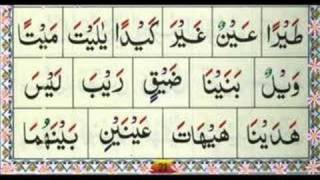 طَيْرًا عَيْنٌ غَيْرَ كَيْدًا يٰلَيْتَ مَيْتًا
وَيْلٌ بَنَيْنَا ضَيْقٍ رَيْبَ لَيْسَ
هَدَيْنَا هَيْهَاتَ عَيْنَيْنِ بَيْنَهُمَا